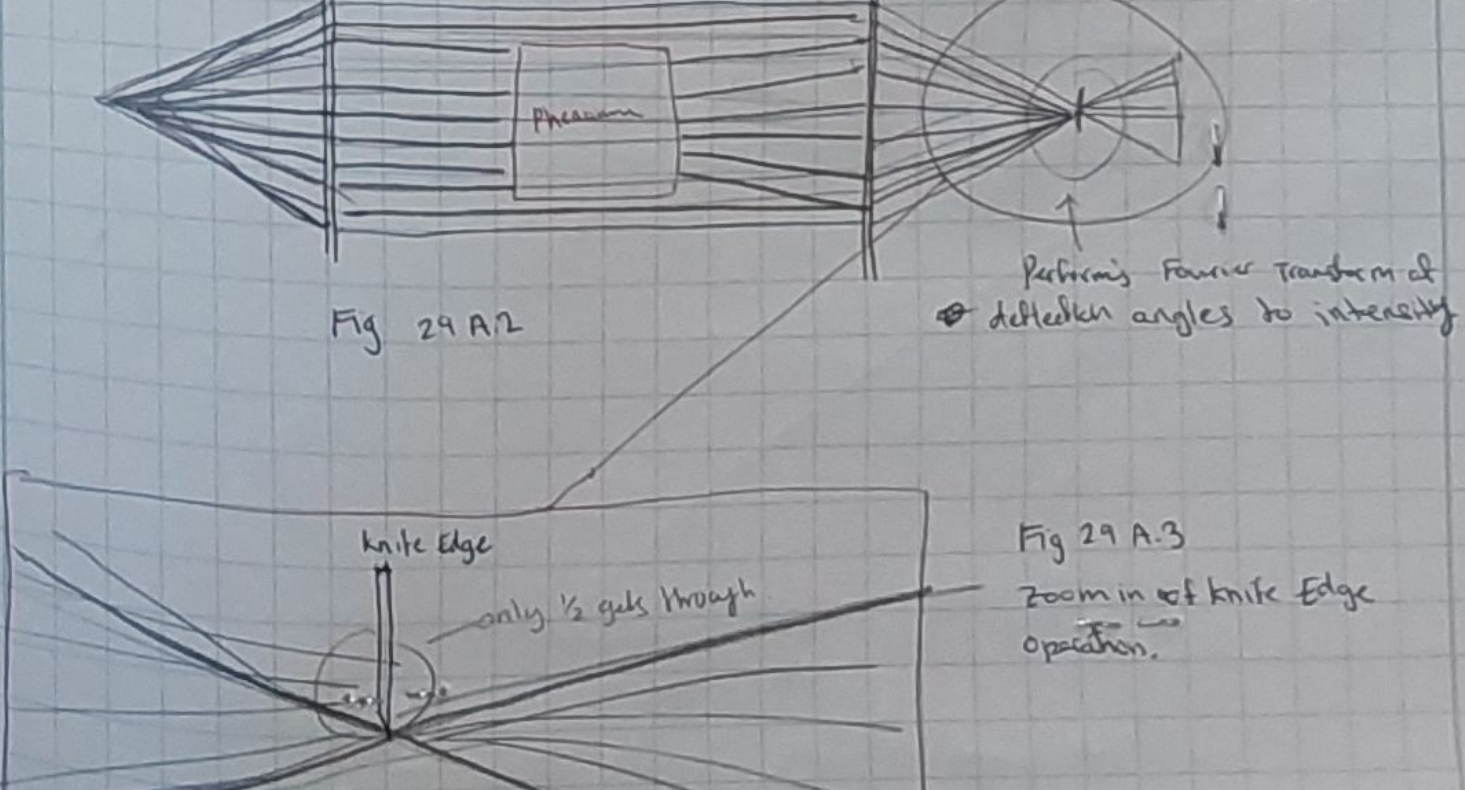 Performs Fourier Transform of
deflection angles to intensity
Fig 29 A.2
Knife Edge
only ½ gets through
Fig 29 A.3
Zoom in of Knife Edge
Operation.